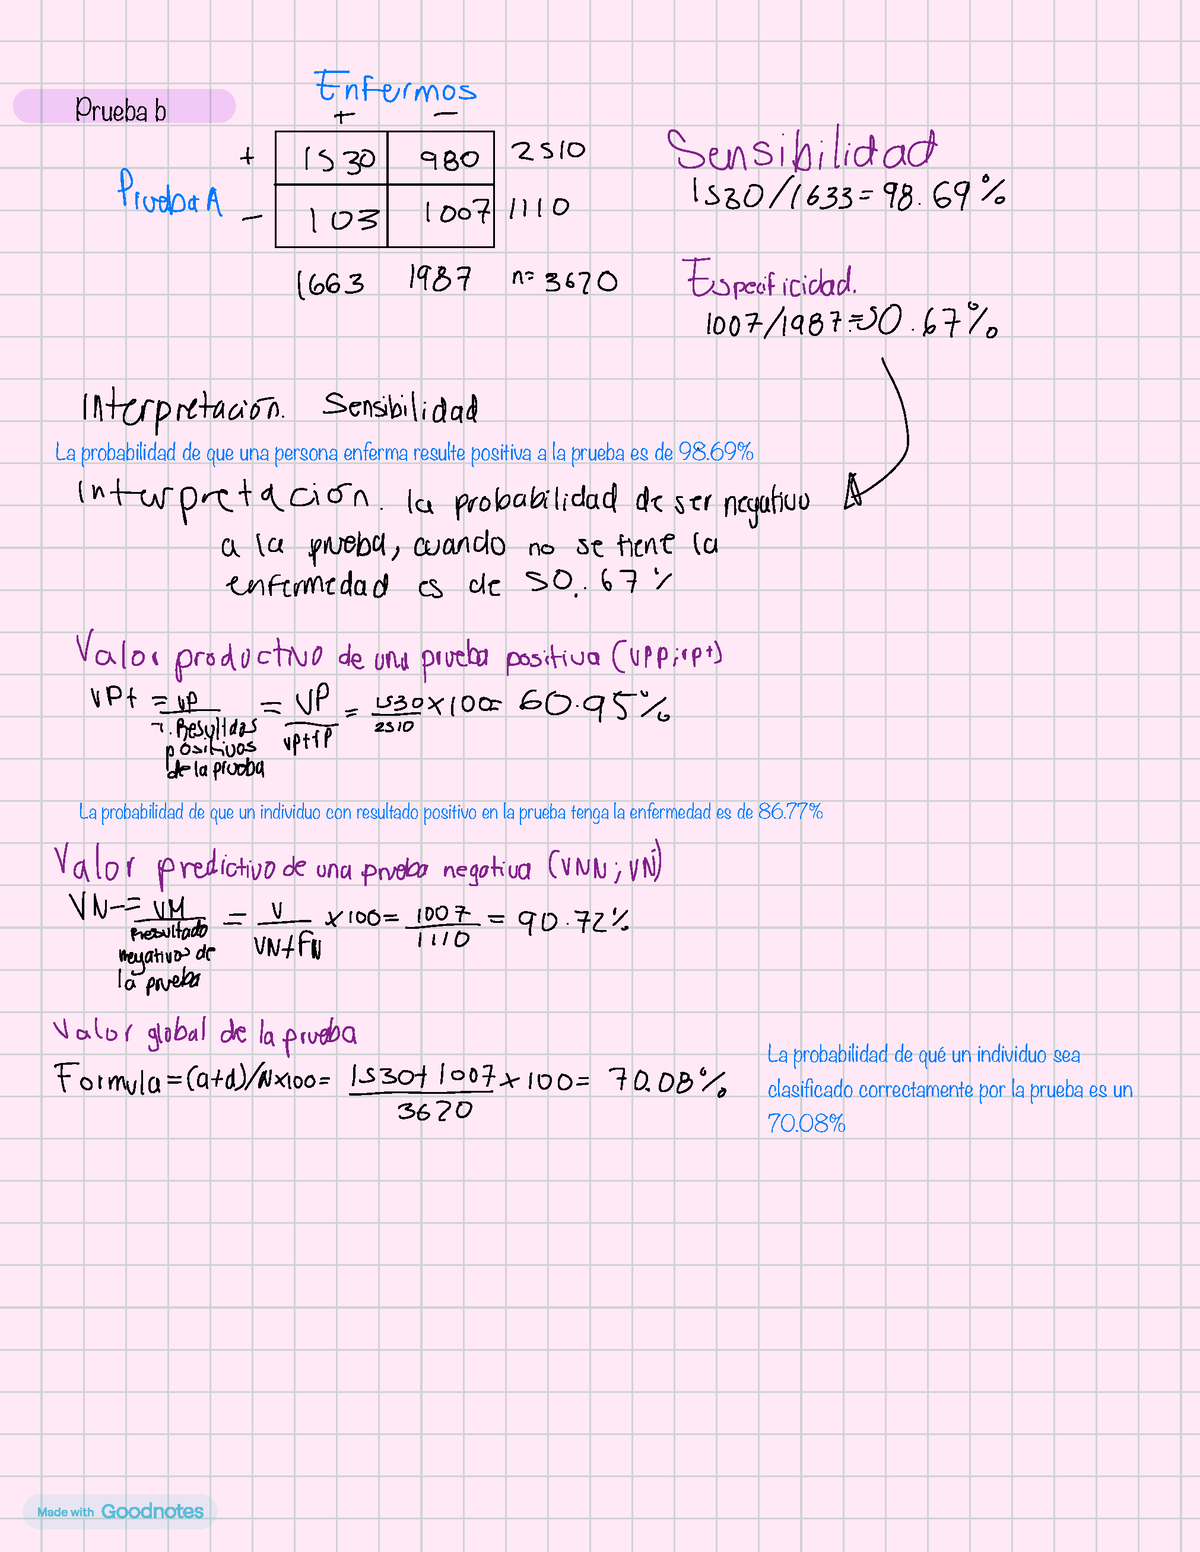 Prueba b
Enfermos
+ −
+ 1530 980 2510
Prueba A
− 103 1007 1110
1663 1987 n= 3620
Sensibilidad
1530/1633= 98.69%
Especificidad.
1007/1987=50.67%
Interpretación. Sensibilidad
La probabilidad de que una persona enferma resulte positiva a la prueba es de 98.69%
Interpretación. la probabilidad de ser negativo
a la prueba, cuando no se tiene la
enfermedad es de 50..67%
Valor productivo de una prueba positiva (VPP;rp+)
VP+ = VP = VP = 1530 x100= 60.95%
Resultdas VP+fP 2510
positivos
de la prueba
La probabilidad de que un individuo con resultado positivo en la prueba tenga la enfermedad es de 86.77%
Valor predictivo de una prueba negativa (VNN; VN)
VN−= VM = V x100= 1007 = 90.72%
Resultado VN+FN 1110
negativos de
la prueba
Valor global de la prueba
Formula=(a+d)/Nx100= 1530+1007 x 100= 70.08%
3620
La probabilidad de qué un individuo sea
clasificado correctamente por la prueba es un
70.08%
Made with Goodnotes